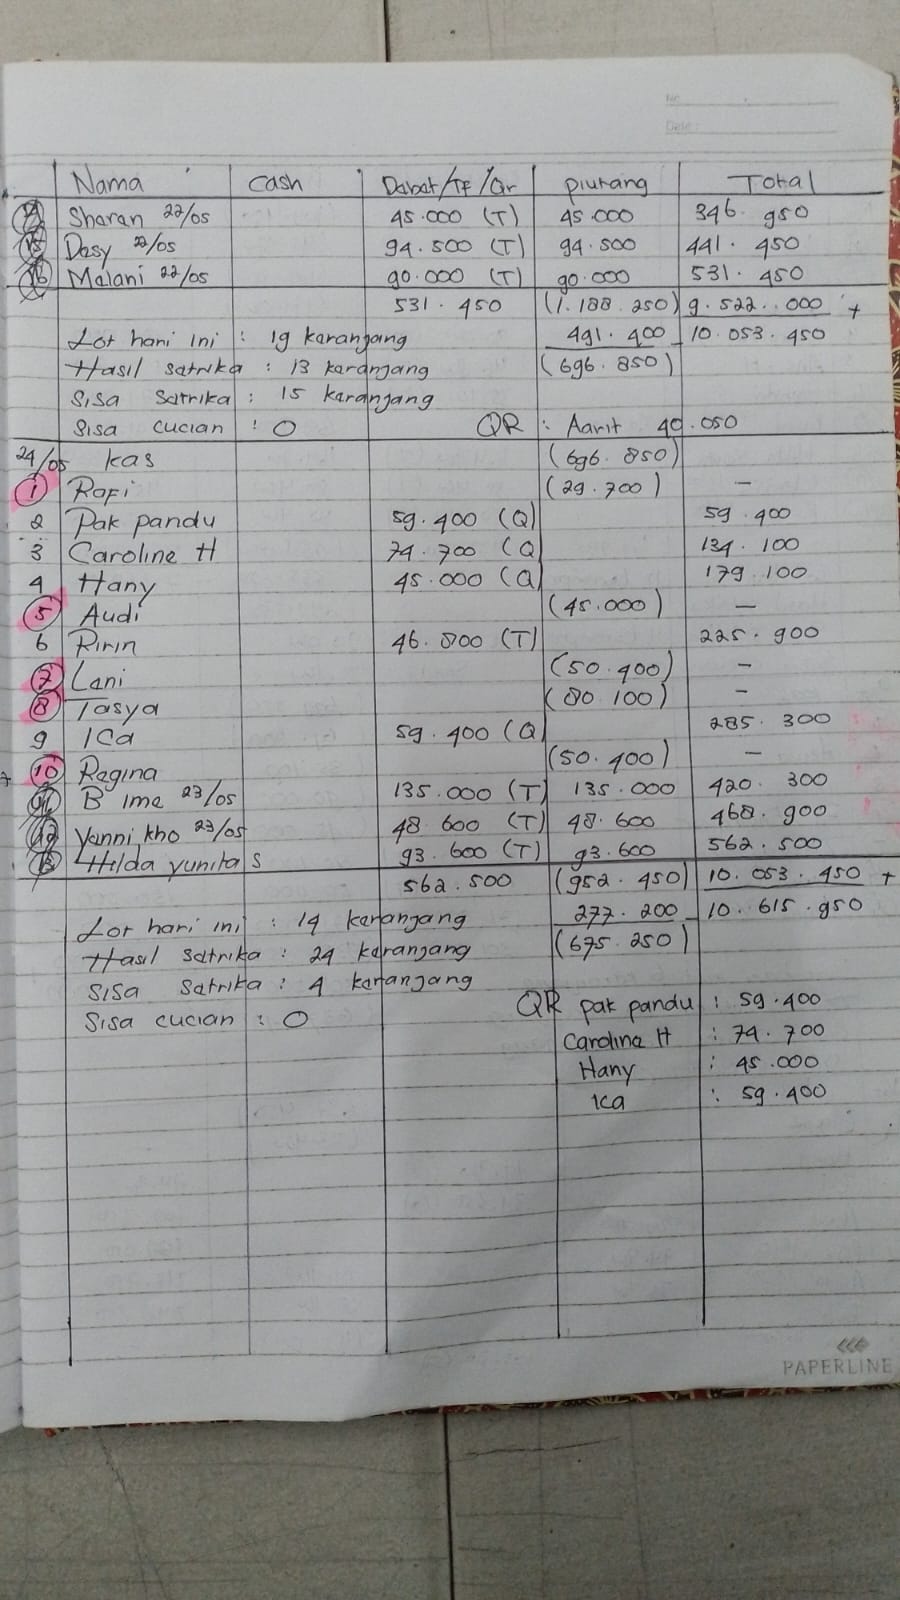 No.
Date:
Nama Cash Dabat/TF/Qr piutang Total
Sharan 22/05 45.000 (T) 45.000 346.950
15 Dasy 22/05 94.500 (T) 94.500 441.450
16 Malani 22/05 90.000 (T) 90.000 531.450
531.450 (1.188.250) 9.522.000 +
Lot hari ini : 19 karanjang 491.400 - 10.053.450
Hasil satrika : 13 karanjang (696.850)
Sisa Satrika : 15 karanjang
Sisa cucian : 0 QR : Aarit 40.050
24/05 kas (696.850)
1 Rafi (29.700) -
2 Pak pandu 59.400 (Q) 59.400
3 Caroline H 74.700 (Q) 134.100
4 Hany 45.000 (Q) 179.100
5 Audi (45.000) -
6 Ririn 46.800 (T) 225.900
7 Lani (50.400) -
8 Tasya (80.100) -
9 ICa 59.400 (Q) 285.300
10 Regina (50.400) -
11 B Ima 23/05 135.000 (T) 135.000 420.300
12 Yanni kho 23/05 48.600 (T) 48.600 468.900
13 Hilda yunita S 93.600 (T) 93.600 562.500
562.500 (952.450) 10.053.450 +
Lot hari ini : 14 karanjang 277.200 - 10.615.950
Hasil Satrika : 24 karanjang (675.250)
SISa Satrika : 4 karanjang
Sisa cucian : 0
QR pak pandu : 59.400
Carolina H : 74.700
Hany : 45.000
Ica : 59.400
PAPERLINE